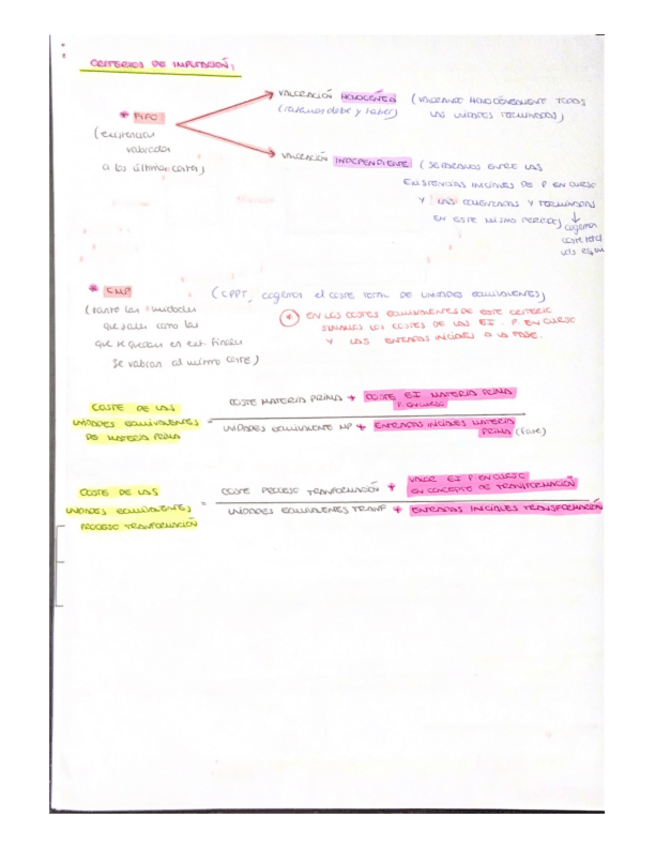 CRITERIOS DE IMPUTACIÓN:
* FIFO
(existencias
valoradas
a los últimos costes)
VALORACIÓN HOMOGÉNEA (VALORANDO HOMOGÉNEAMENTE TODAS
LAS UNIDADES TERMINADAS)
VALORACIÓN INDEPENDIENTE (SEPARAMOS ENTRE LAS
EXISTENCIAS INICIALES DE P EN CURSO
Y LAS COMENZADAS Y TERMINADAS
EN ESTE MISMO PERIODO)
cogemos
coste total
* CMP
(tanto las unidades
que salen como las
que se quedan en ext. finales
se valoran al mismo coste)
(CPPT, cogemos el COSTE TOTAL DE UNIDADES EQUIVALENTES)
* EN LOS COSTES EQUIVALENTES DE ESTE CRITERIO
SUMAMOS LOS COSTES DE LAS EI. P EN CURSO
Y LAS ENTRADAS INICIALES A LA FASE.
COSTE DE LAS
UNIDADES EQUIVALENTES
DE MATERIA PRIMA
=
COSTE MATERIA PRIMA + COSTE EI MATERIA PRIMA
P. EN CURSO
UNIDADES EQUIVALENTE MP + ENTRADAS INICIALES MATERIA
PRIMA (fase)
COSTE DE LAS
UNIDADES EQUIVALENTES
PROCESO TRANFORMACIÓN
=
COSTE PROCESO TRANFORMACIÓN + VALOR EI P EN CURSO
EN CONCEPTO DE TRANSFORMACIÓN
UNIDADES EQUIVALENTES TRANF + ENTRADAS INICIALES TRANSFORMACIÓN